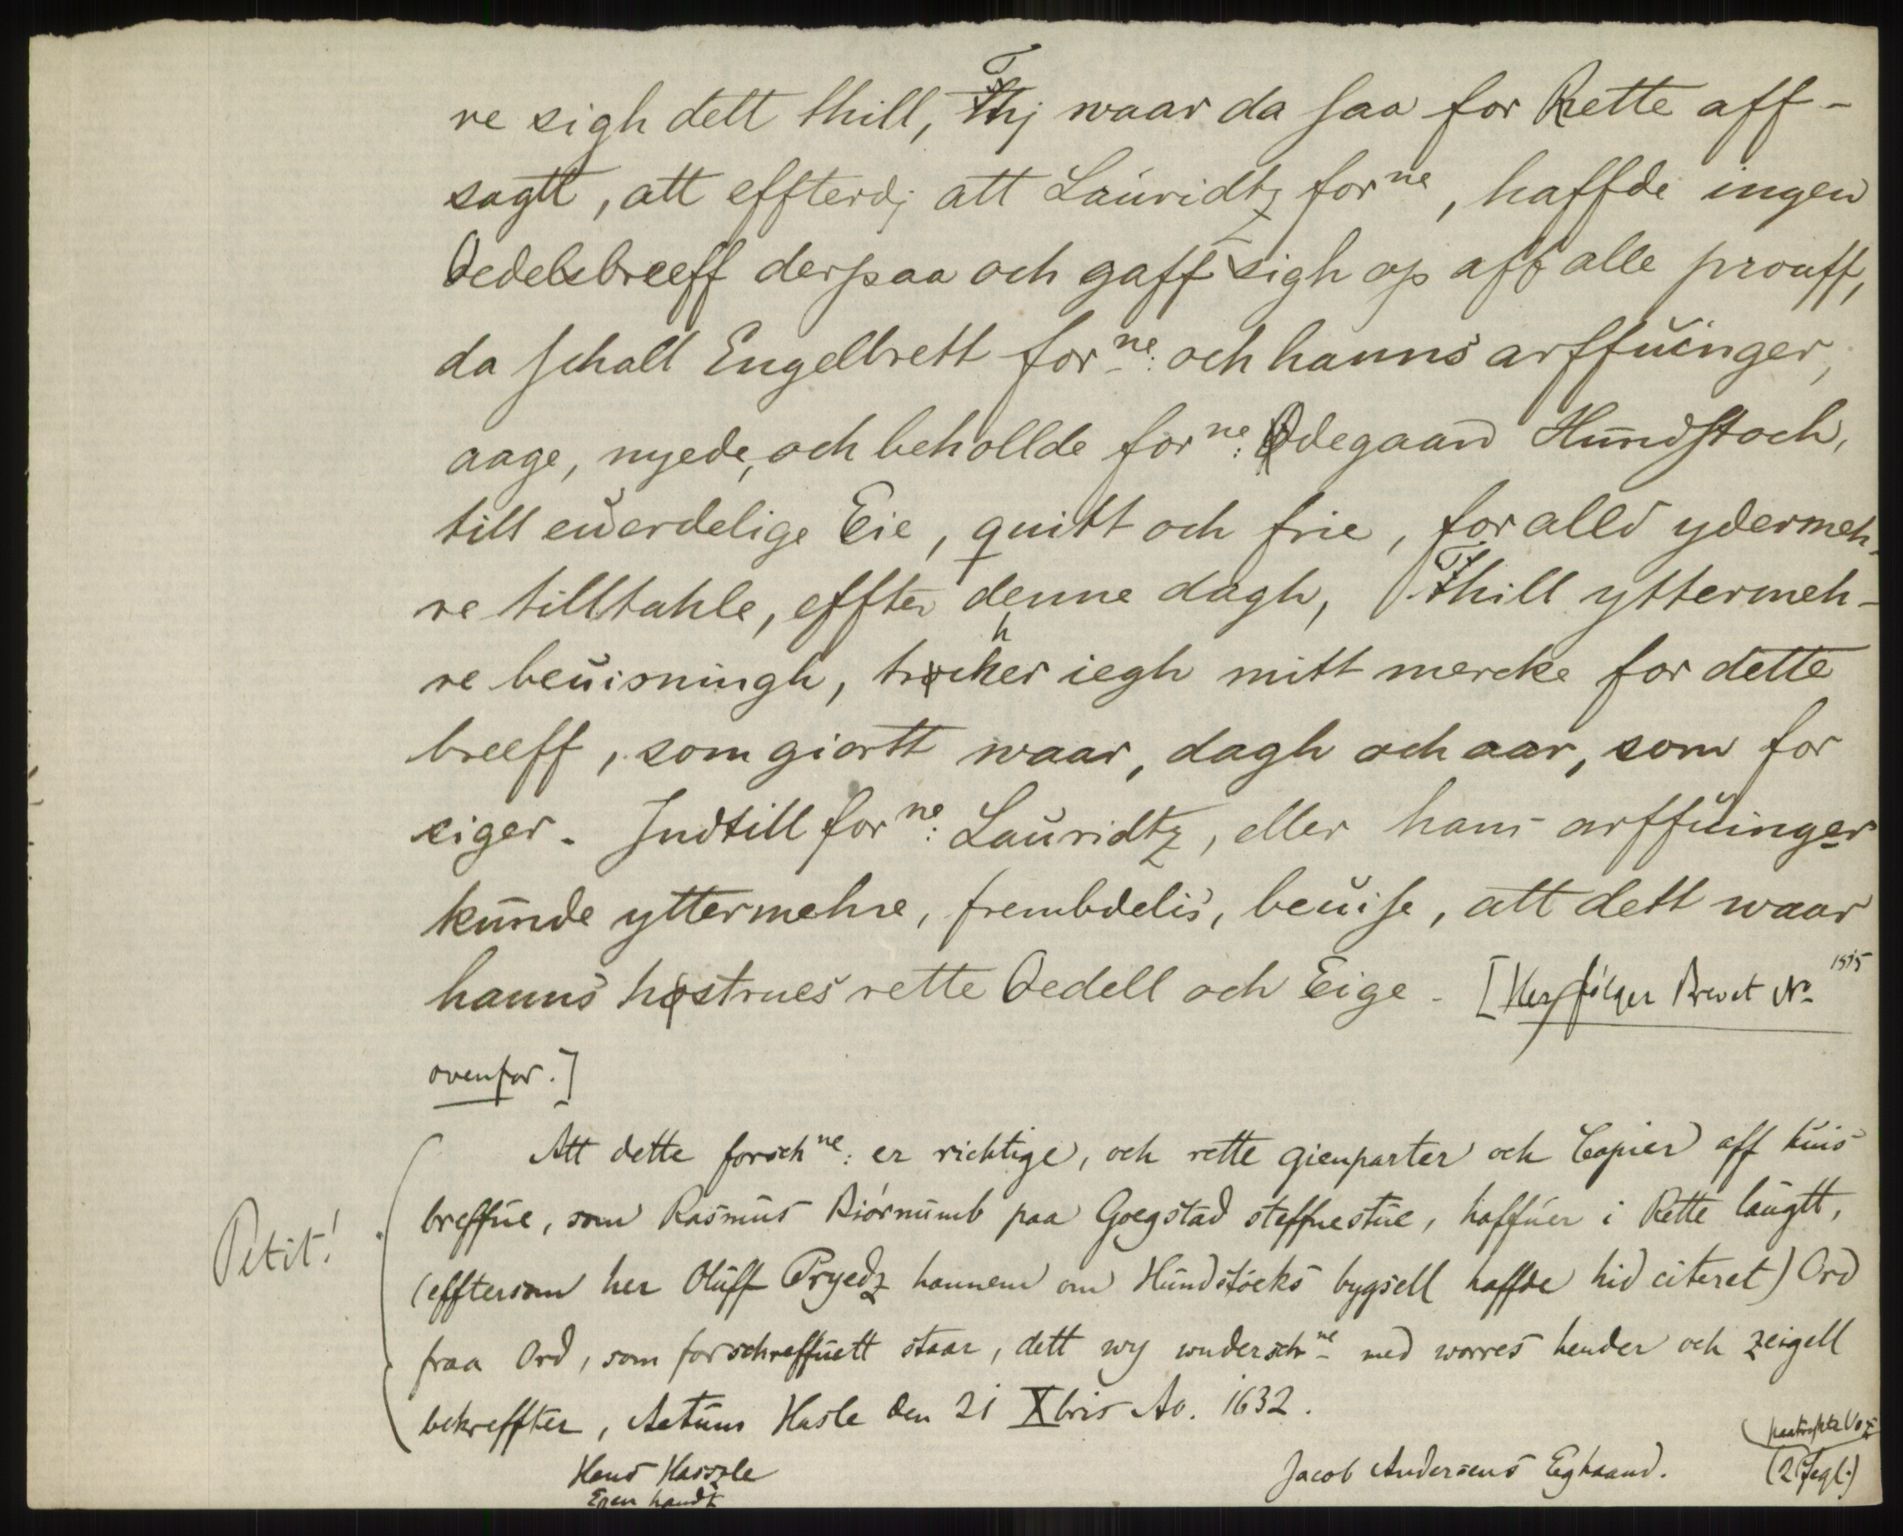 re sigh dett thill, Thj waar da saa for Rette aff-
sagtt, att effterdj att Lauridtz forne, haffde ingen
Oedelsbreeff derpaa och gaff sigh op aff alle prouff,
da schall Engelbrett forne: och hanns arffuinger,
aage, nyede, och behollde forne: Ødegaard Hundstoch,
till euerdelige Eie, quitt och frie, for alld ydermeh-
re tilltahle, effter denne dagh, Thill yttermeh-
re beuisningh, trøcher iegh mitt mercke for dette
breeff, som giortt waar, dagh och aar, som for
siger. Indtill forne: Lauridtz, eller hans arffuinger
kunde yttermehre, frembdelis, beuise, att dett waar
hanns høstrues rette Oedell och Eige. [Her følger Brevet No 1515
ovenfor.]
Att dette forschne: er richtige, och rette gienparter och Copier aff huis
breffue, som Rasmus Biørnumb paa Goegstad steffnestue, haffuer i Rette laugtt,
(efftersom her Oluff Pryedz hannem om Hundstocks bygsell haffde hid citeret) Ord
fraa Ord, som forschreffuett staar, dett wy underschne med worres hender och zeigell
bekreffter, Actum Hasle den 21 Xbris Ao. 1632.
Petit!
Hans Haszle
Egen handt
Jacob Andersens Eghaand.
(2 Segl.)